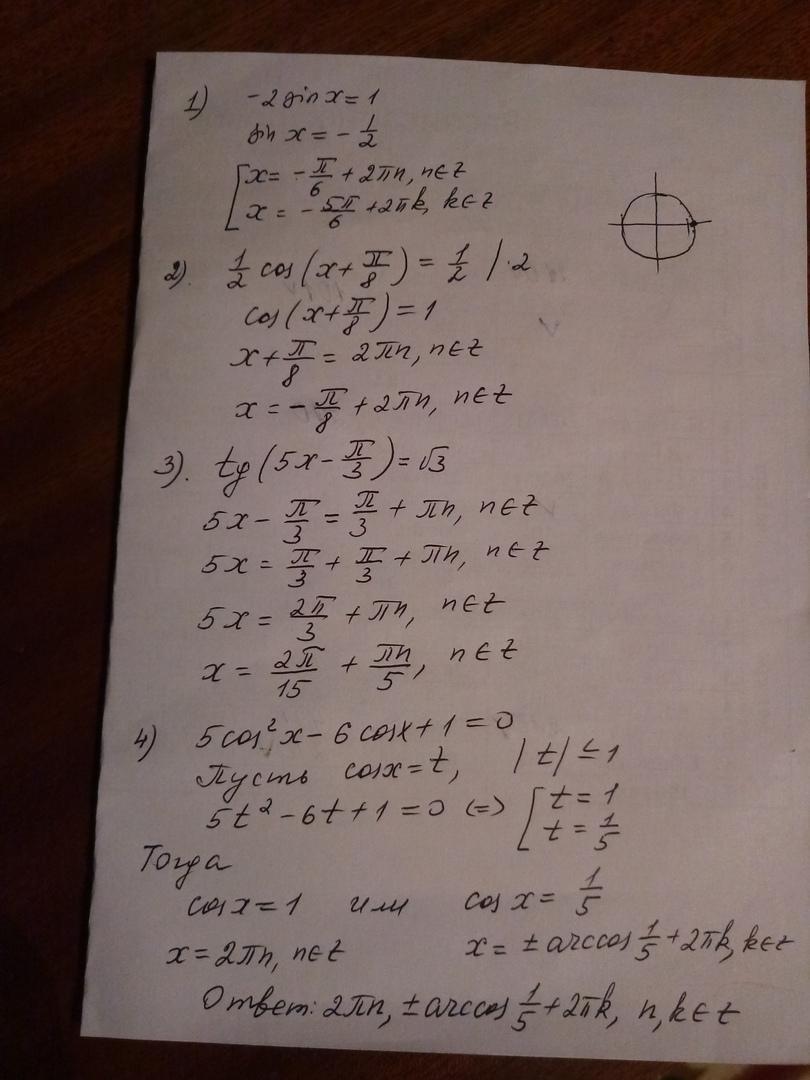 1) -2 sin x = 1
sin x = - 1/2
[ x = - π/6 + 2πn, n∈Z
x = - 5π/6 + 2πk, k∈Z
2). 1/2 cos (x + π/8) = 1/2 /·2
cos (x + π/8) = 1
x + π/8 = 2πn, n∈Z
x = - π/8 + 2πn, n∈Z
3). tg (5x - π/3) = √3
5x - π/3 = π/3 + πn, n∈Z
5x = π/3 + π/3 + πn, n∈Z
5x = 2π/3 + πn, n∈Z
x = 2π/15 + πn/5, n∈Z
4) 5cos²x - 6cosx + 1 = 0
Пусть cosx = t, |t| ≤ 1
5t² - 6t + 1 = 0 <=> [ t = 1
t = 1/5
Тогда
cosx = 1 или cos x = 1/5
x = 2πn, n∈Z x = ± arccos 1/5 + 2πk, k∈Z
Ответ: 2πn, ± arccos 1/5 + 2πk, n, k∈Z